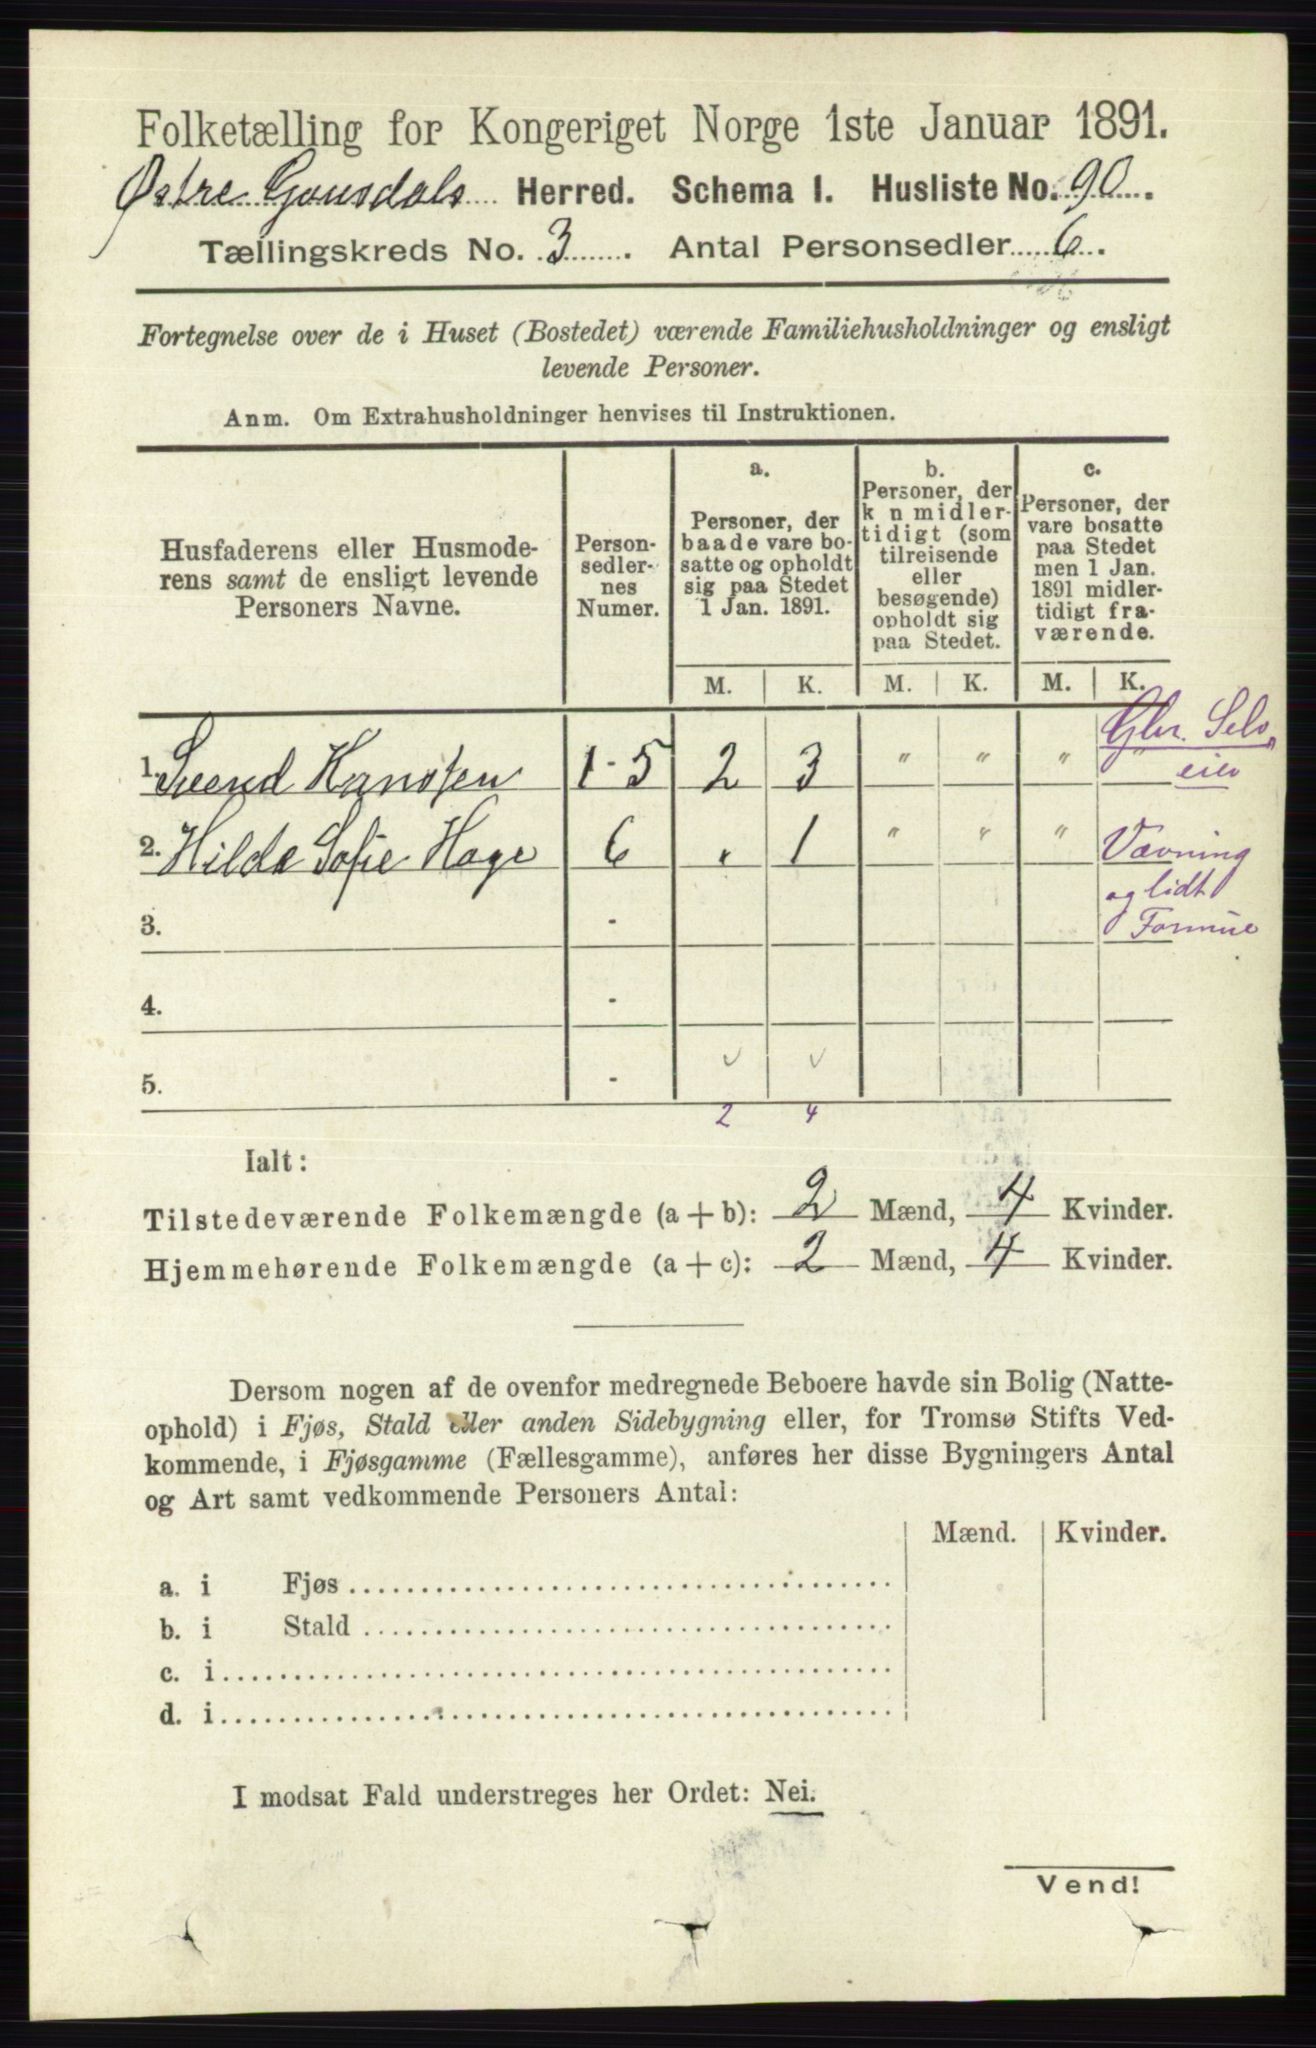 Folketælling for Kongeriget Norge 1ste Januar 1891.
Østre Gausdals Herred. Schema I. Husliste No. 90.
Tællingskreds No. 3. Antal Personsedler 6.
Fortegnelse over de i Huset (Bostedet) værende Familiehusholdninger og ensligt
levende Personer.
Anm. Om Extrahusholdninger henvises til Instruktionen.
Husfaderens eller Husmode-
rens samt de ensligt levende
Personers Navne.
Person-
sedler-
nes
Numer.
a.
Personer, der
baade vare bo-
satte og opholdt
sig paa Stedet
1 Jan. 1891.
b.
Personer, der
k n midler-
tidigt (som
tilreisende
eller
besøgende)
opholdt sig
paa Stedet.
c.
Personer, der
vare bosatte
paa Stedet
men 1 Jan.
1891 midler-
tidigt fra-
værende.
M. K. M. K. M. K.
1. Svend Hansen 1-5 2 3 " " " " Gbr. Selv
eier
2. Hilda Sofie Hage 6 " 1 " " " Vævning
og lidt
Formue
3. -
4. -
5. -
2 4
Ialt:
Tilstedeværende Folkemængde (a + b): 2 Mænd, 4 Kvinder.
Hjemmehørende Folkemængde (a + c): 2 Mænd, 4 Kvinder.
Dersom nogen af de ovenfor medregnede Beboere havde sin Bolig (Natte-
ophold) i Fjøs, Stald eller anden Sidebygning eller, for Tromsø Stifts Ved-
kommende, i Fjøsgamme (Fællesgamme), anføres her disse Bygningers Antal
og Art samt vedkommende Personers Antal:
Mænd. Kvinder.
a. i Fjøs
b. i Stald
c. i
d. i
I modsat Fald understreges her Ordet: Nei.
Vend!